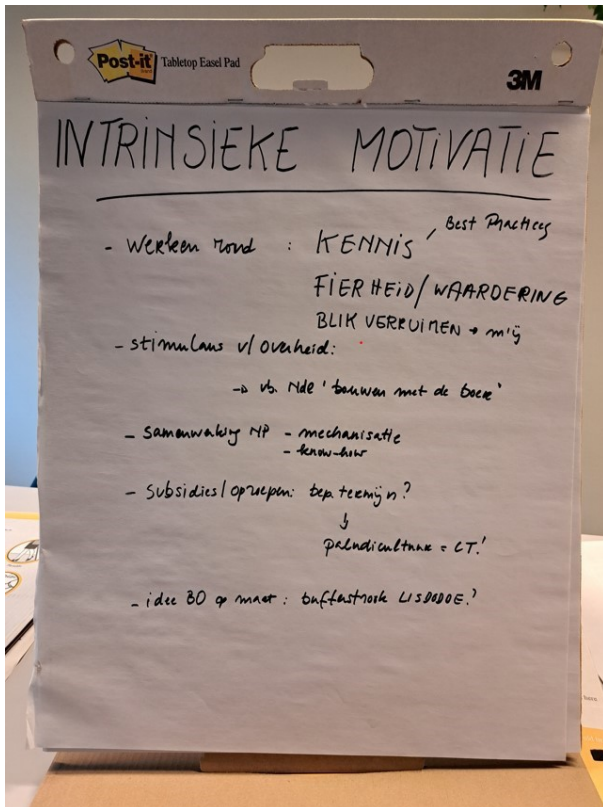 Post-it Tabletop Easel Pad
3M
INTRINSIEKE MOTIVATIE
- Werken rond : KENNIS Best Practices
FIERHEID/WAARDERING
BLIK VERRUIMEN → m'ij
- stimulans v/overheid:
→ vb. Nde 'bouwen met de boer'
- Samenwerking NP - mechanisatie
- know-how
- Subsidies/oproepen: bep. termijn?
↓
paludicultuur = LT!
- idee BO op maat : bufferstrook LISDODDE?